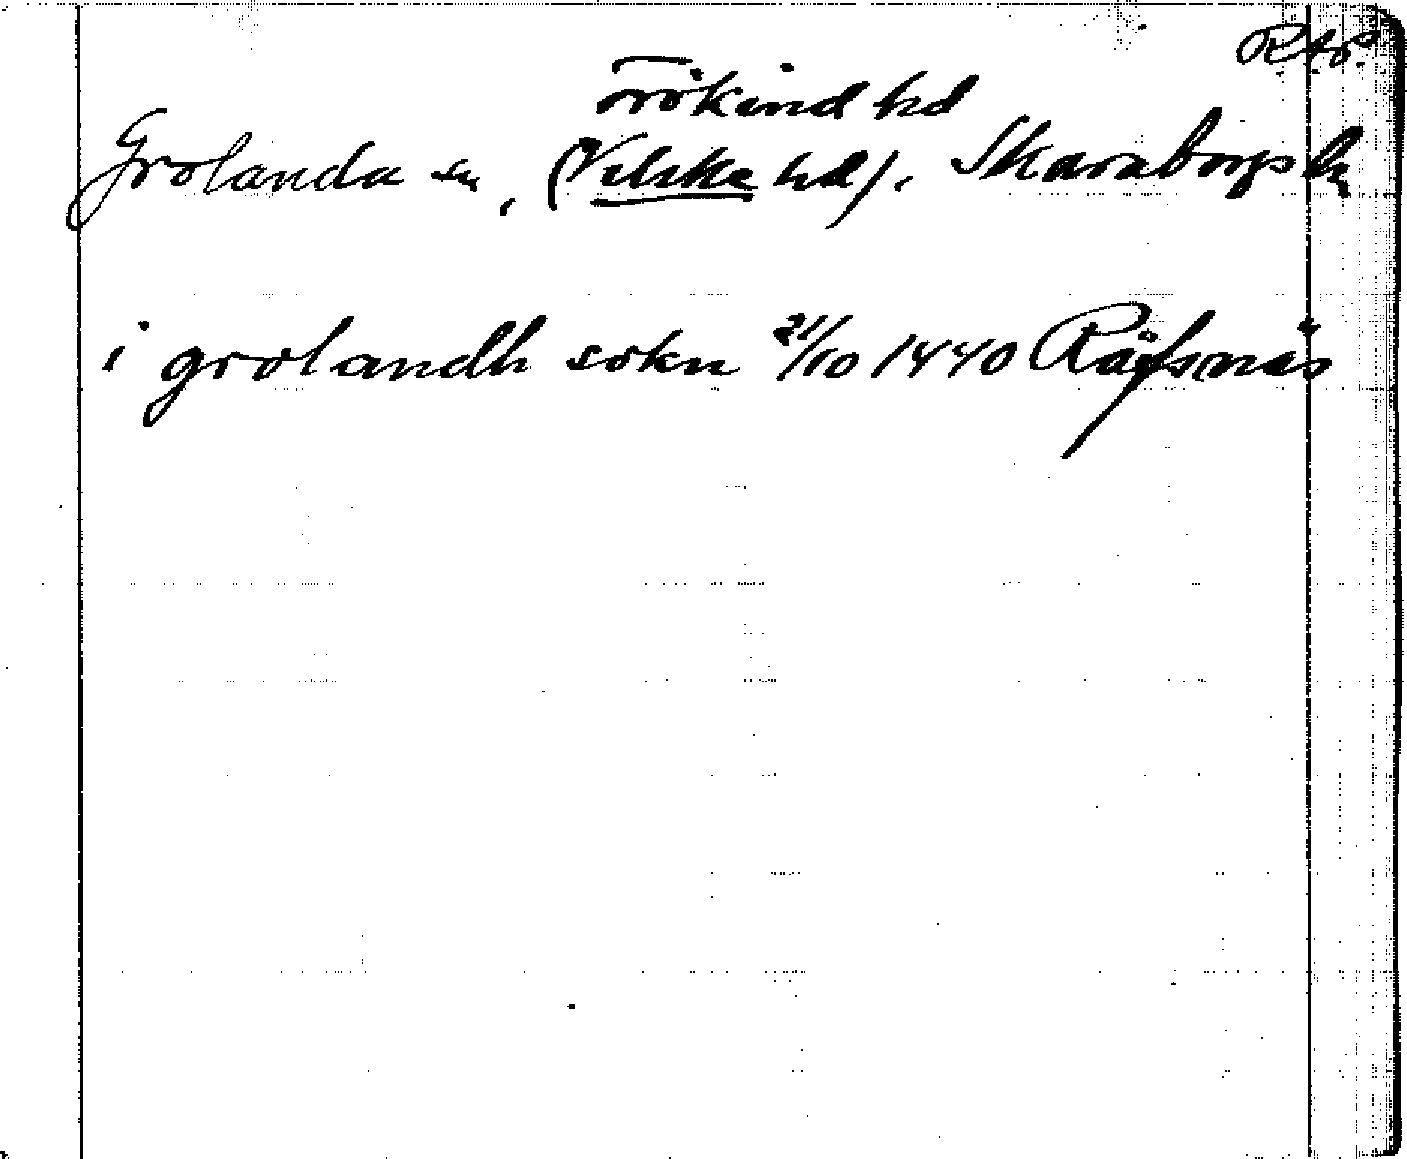 RAp.
Frökind hd
Grolanda sn, (Vilske hd). Skaraborgs ln
i grolandh sokn 21/10 1440 Räfsnäs